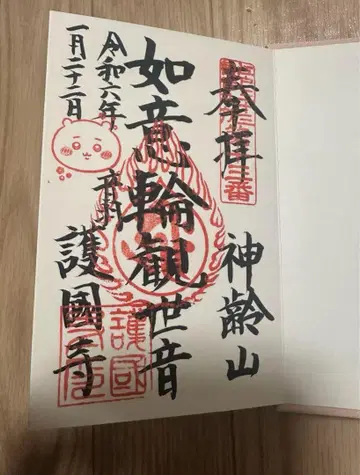 奉拝
神齢山
如意輪観世音
令和六年
一月二十二日
音羽
護國寺
護國